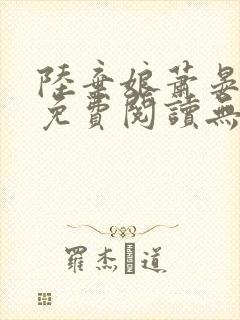 陸棄娘蕭晏
免費閱讀無
羅杰 道